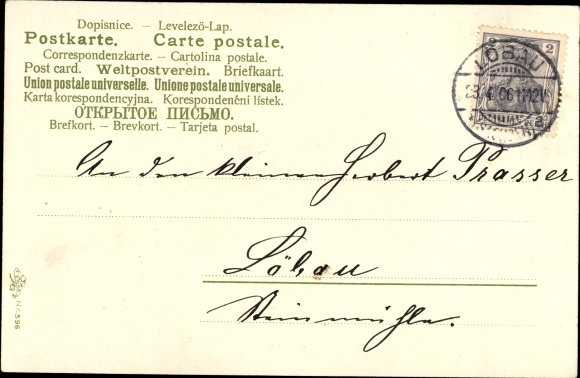 Dopisnice. – Levelező-Lap.
Postkarte. Carte postale.
Correspondenzkarte. – Cartolina postale.
Post card. Weltpostverein. Briefkaart.
Union postale universelle. Unione postale universale.
Karta korespondencyjna. Korespondenční lístek.
ОТКРЫТОЕ ПИСЬМО.
Brefkort. – Brevkort. – Tarjeta postal.
2 2
LÖBAU
An den kleinen Herbert Prasser
Löbau
Steinmühle.
Nr. 596